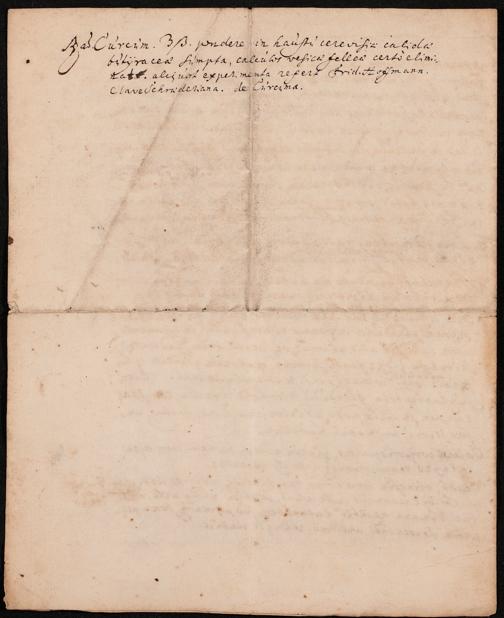 Rad. Curcum. ʒβ. pondere in haustu cerevisiæ calidæ
bituraceæ sumpta, calculos vesicæ felleæ certò elimi-
nat. aliquot experimenta refert Frid. Hoffmann.
Clave Schröderiana. de Curcuma.